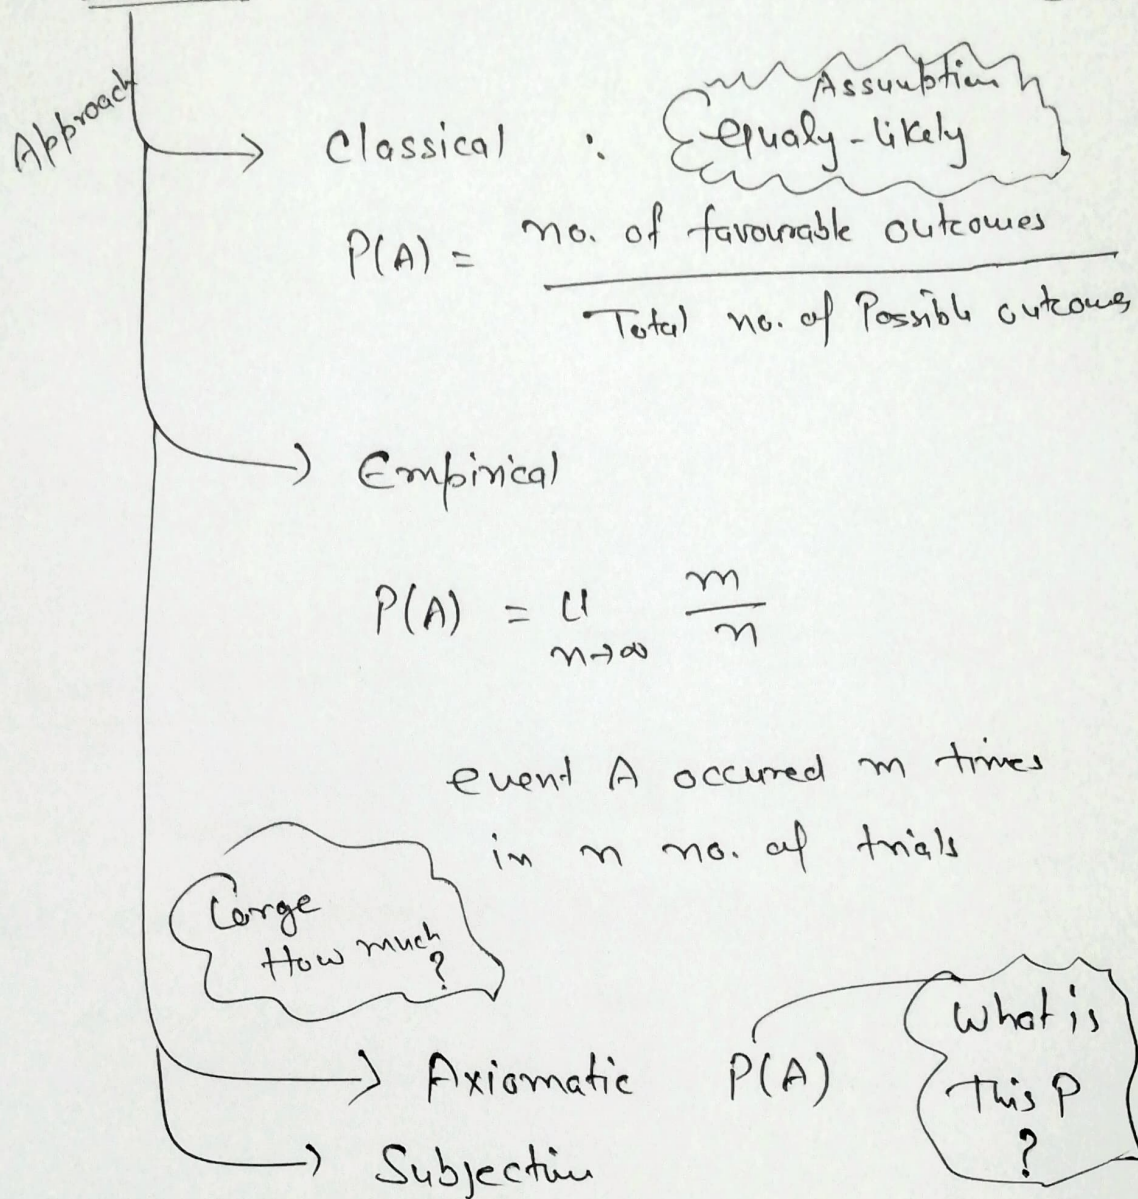 Approach
Classical :
Assumption
equaly-likely
P(A) = no. of favourable outcomes
Total no. of Possible outcomes
Empirical
P(A) = Lt m/n
n→∞
event A occured m times
in n no. of trials
Large
How much
?
Axiomatic P(A)
What is
This P
?
Subjective